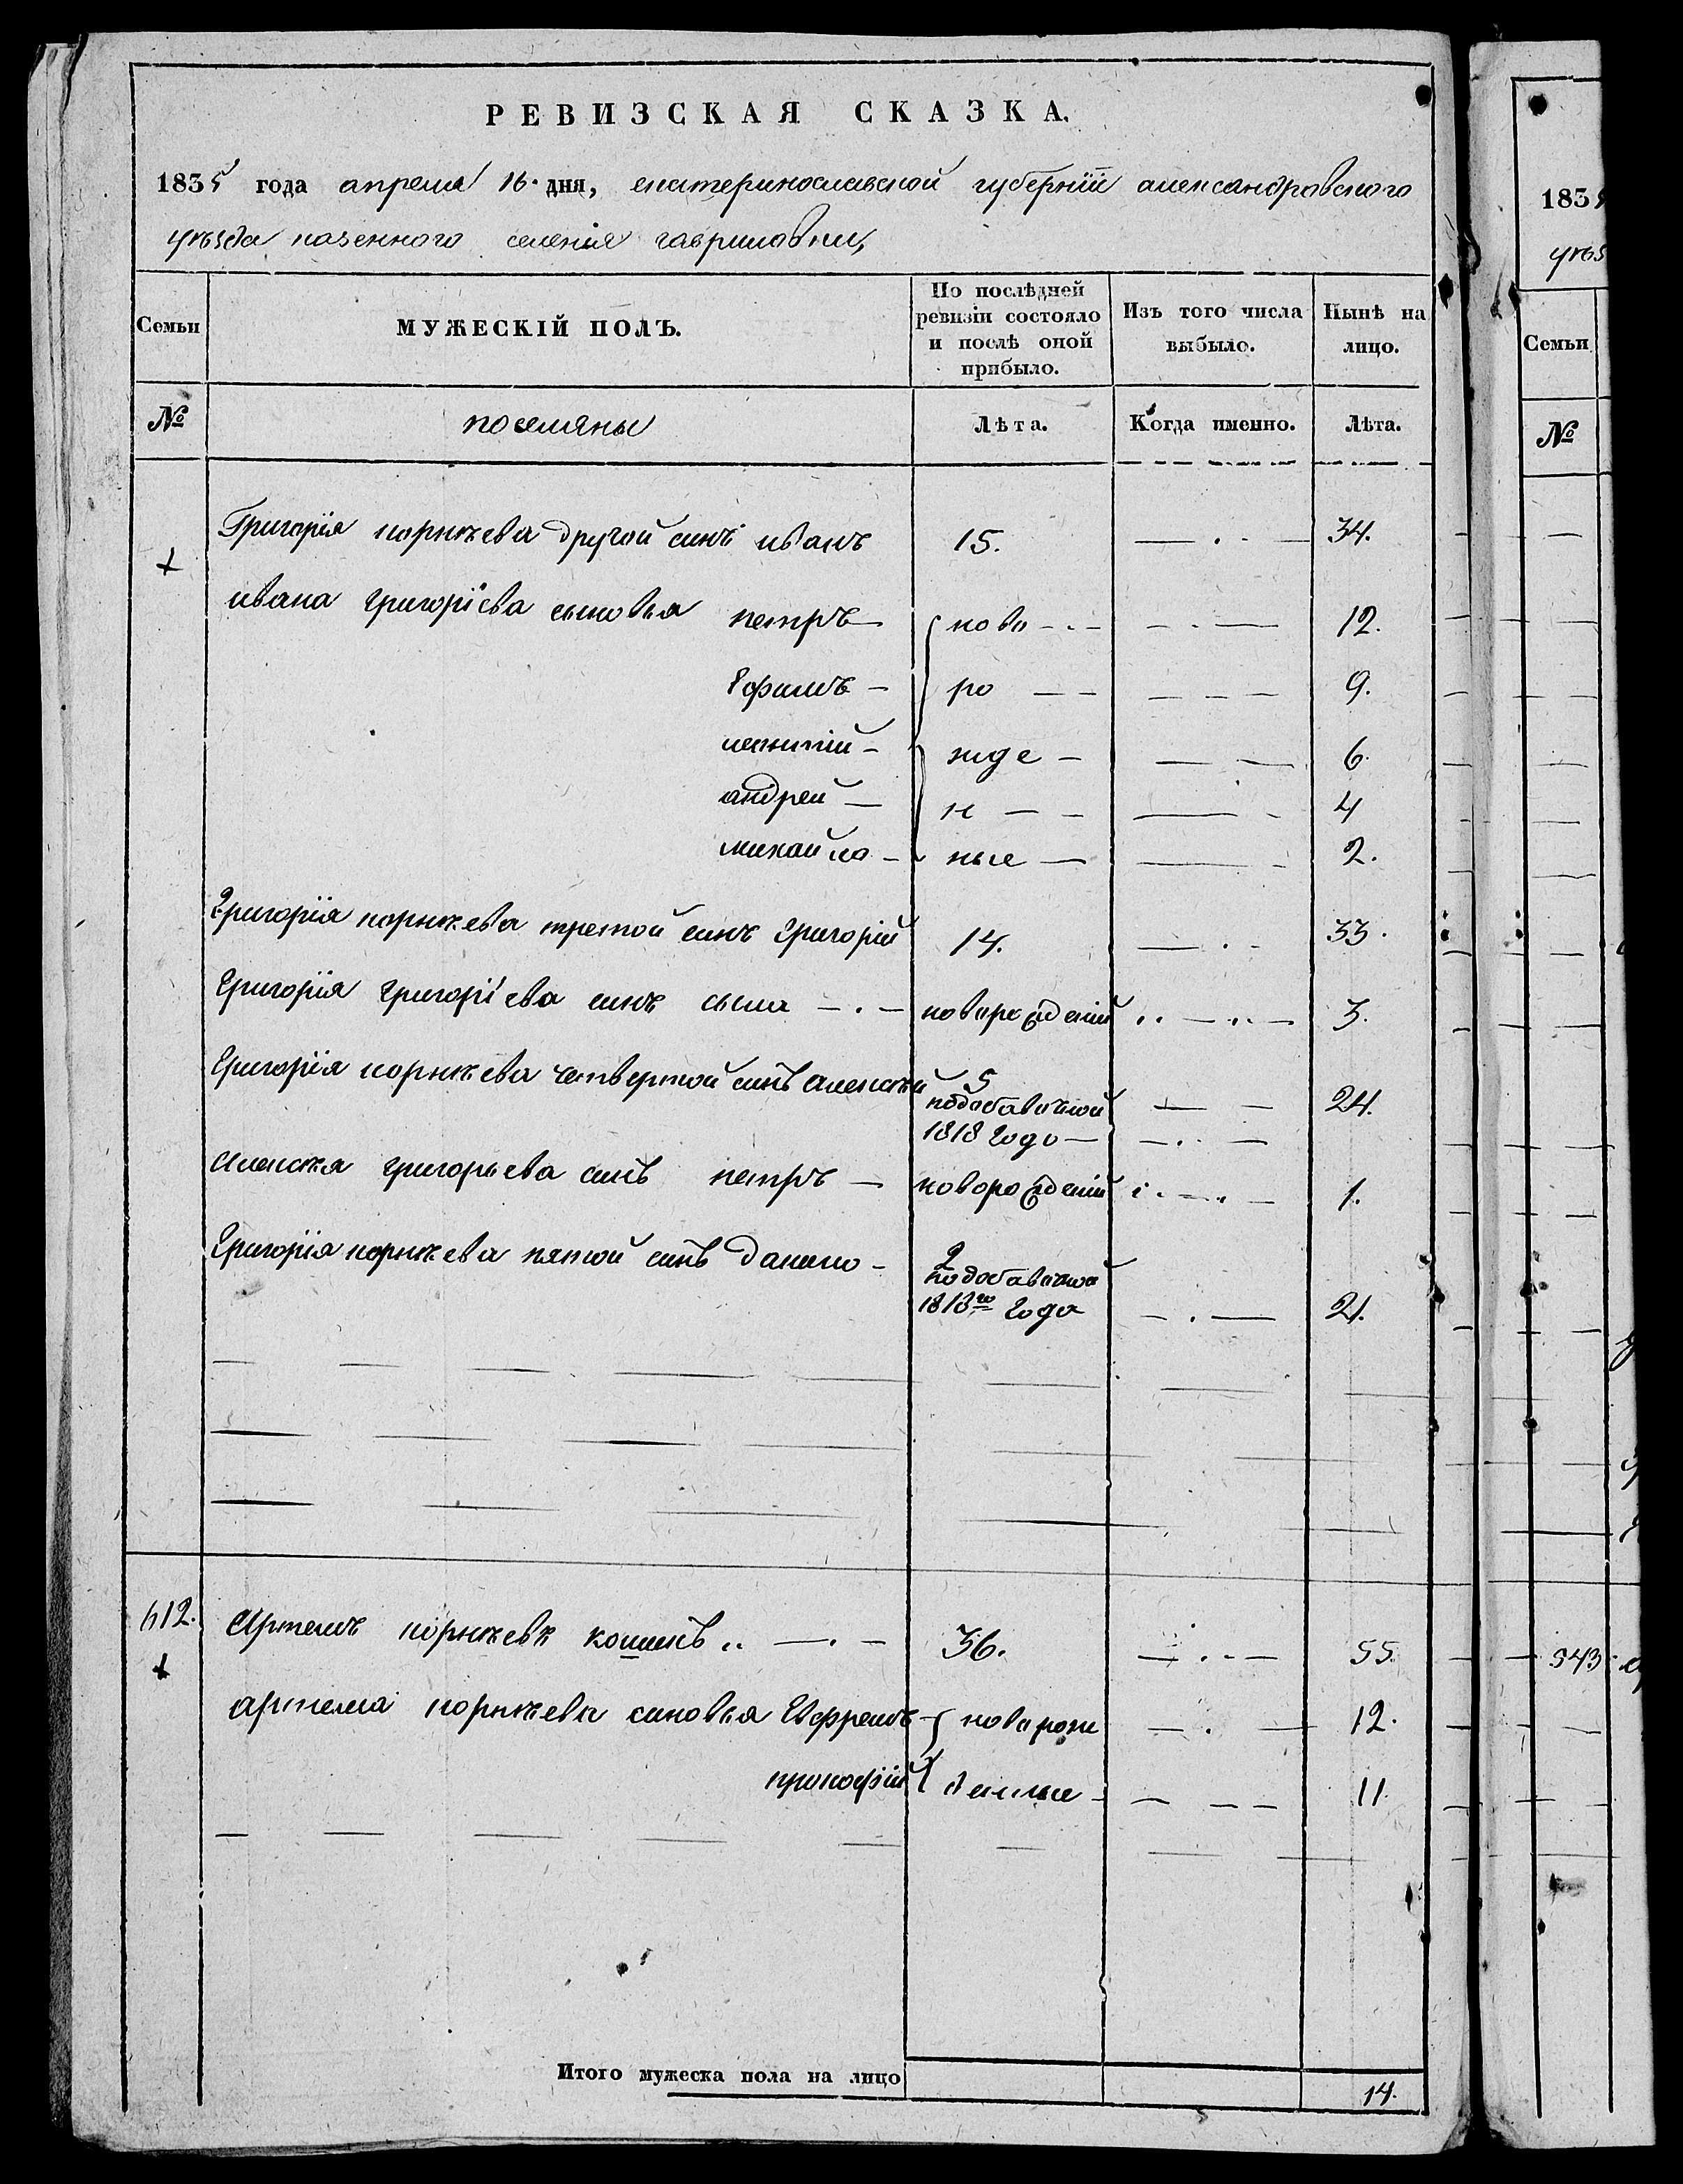 РЕВИЗСКАЯ СКАЗКА.
1835 года апреля 16. дня, екатеринославской губернїи александровского
уѣзда казенного селенїя гавриловки,
Семьи МУЖЕСКІЙ ПОЛЪ. По послѣдней ревизіи состояло и послѣ оной прибыло. Изъ того числа выбыло. Нынѣ на лицо.
№ поселяны Лѣта. Когда именно. Лѣта.
Григорїя корнѣева другой синъ иванъ 15. 34.
ивана григорїева сыновья петръ ново 12.
Ефимъ ро 9.
игнатїй жде 6.
андрей н 4
михайло ные 2.
Григорїя корнѣева третой синъ григорїй 14. 33.
Григорїя григорїева синъ сыла новорожденїй 3.
Григорїя корнѣева четвертой синъ алексѣй 5 24.
подобавочной
1818 года
алексѣя григорьева синъ петръ новорожденїй 1.
Григорїя корнѣева пятой синъ данило 2
подобавочной
1818го года 21.
612. Артемъ корнѣевъ кошикъ 36. 55
артема корнѣева сыновья Евфремъ новорож 12.
прокофїй денные 11.
Итого мужеска пола на лицо 14.
183
уѣз
Семьи
№
543